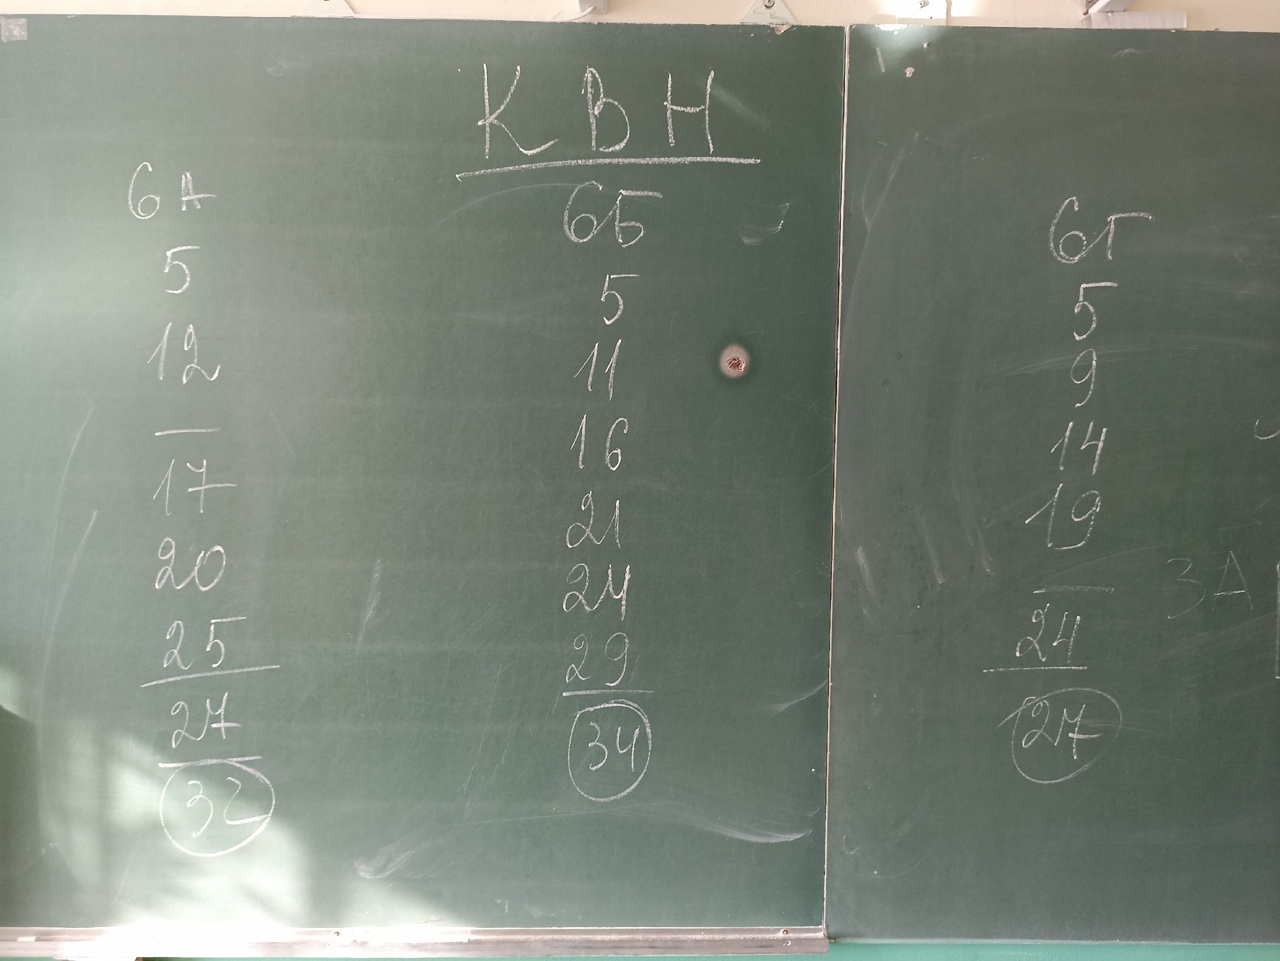 КВН
6А
5
12
—
17
20
25
27
32
6Б
5
11
16
21
24
29
34
6Г
5
9
14
19
—
24
27
3А